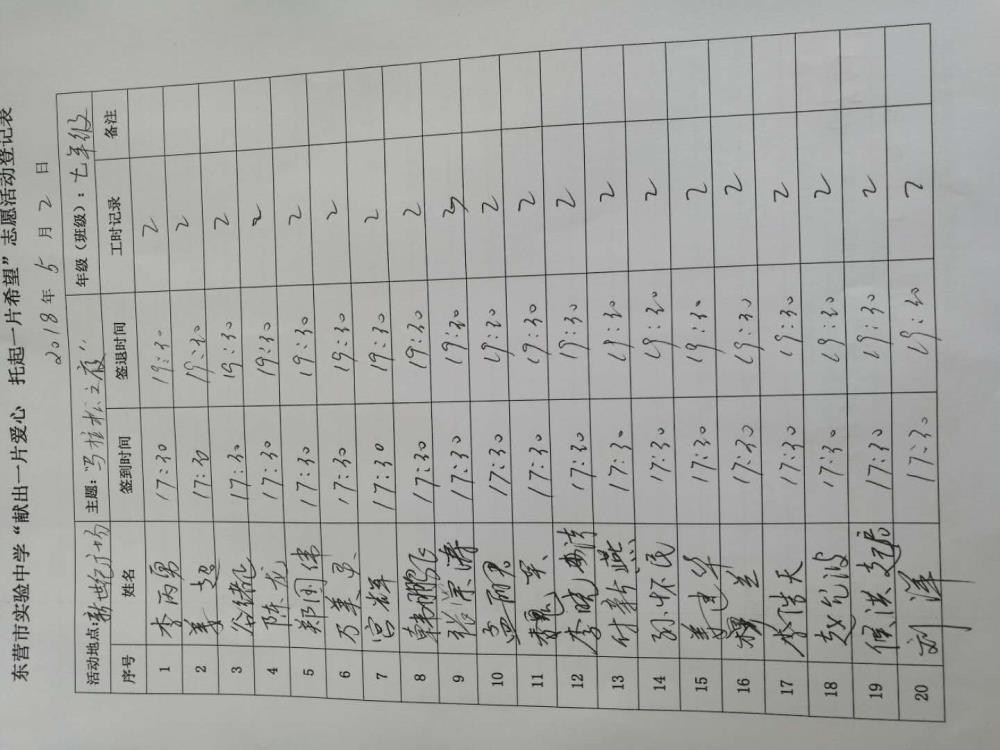 东营市实验中学“献出一片爱心 托起一片希望”志愿活动登记表
2018年5月2日
活动地点:新世纪广场 主题:“马拉松之夜” 年级(班级):七年级
序号 姓名 签到时间 签退时间 工时记录 备注
1 李丙勇 17:30 19:30 2
2 姜超 17:30 19:30 2
3 谷绪延 17:30 19:30 2
4 陈龙 17:30 19:30 2
5 郑国伟 17:30 19:30 2
6 万美勇 17:30 19:30 2
7 宫辉 17:30 19:30 2
8 韩鹏飞 17:30 19:30 2
9 17:30 19:30 2
10 孟丽君 17:30 19:30 2
11 17:30 19:30 2
12 李晓 17:30 19:30 2
13 付新燕 17:30 19:30 2
14 孙怀民 17:30 19:30 2
15 姜建华 17:30 19:30 2
16 穆兰 17:30 19:30 2
17 李浩天 17:30 19:30 2
18 赵允波 17:30 19:30 2
19 侯洪超 17:30 19:30 2
20 刘洋 17:30 19:30 2